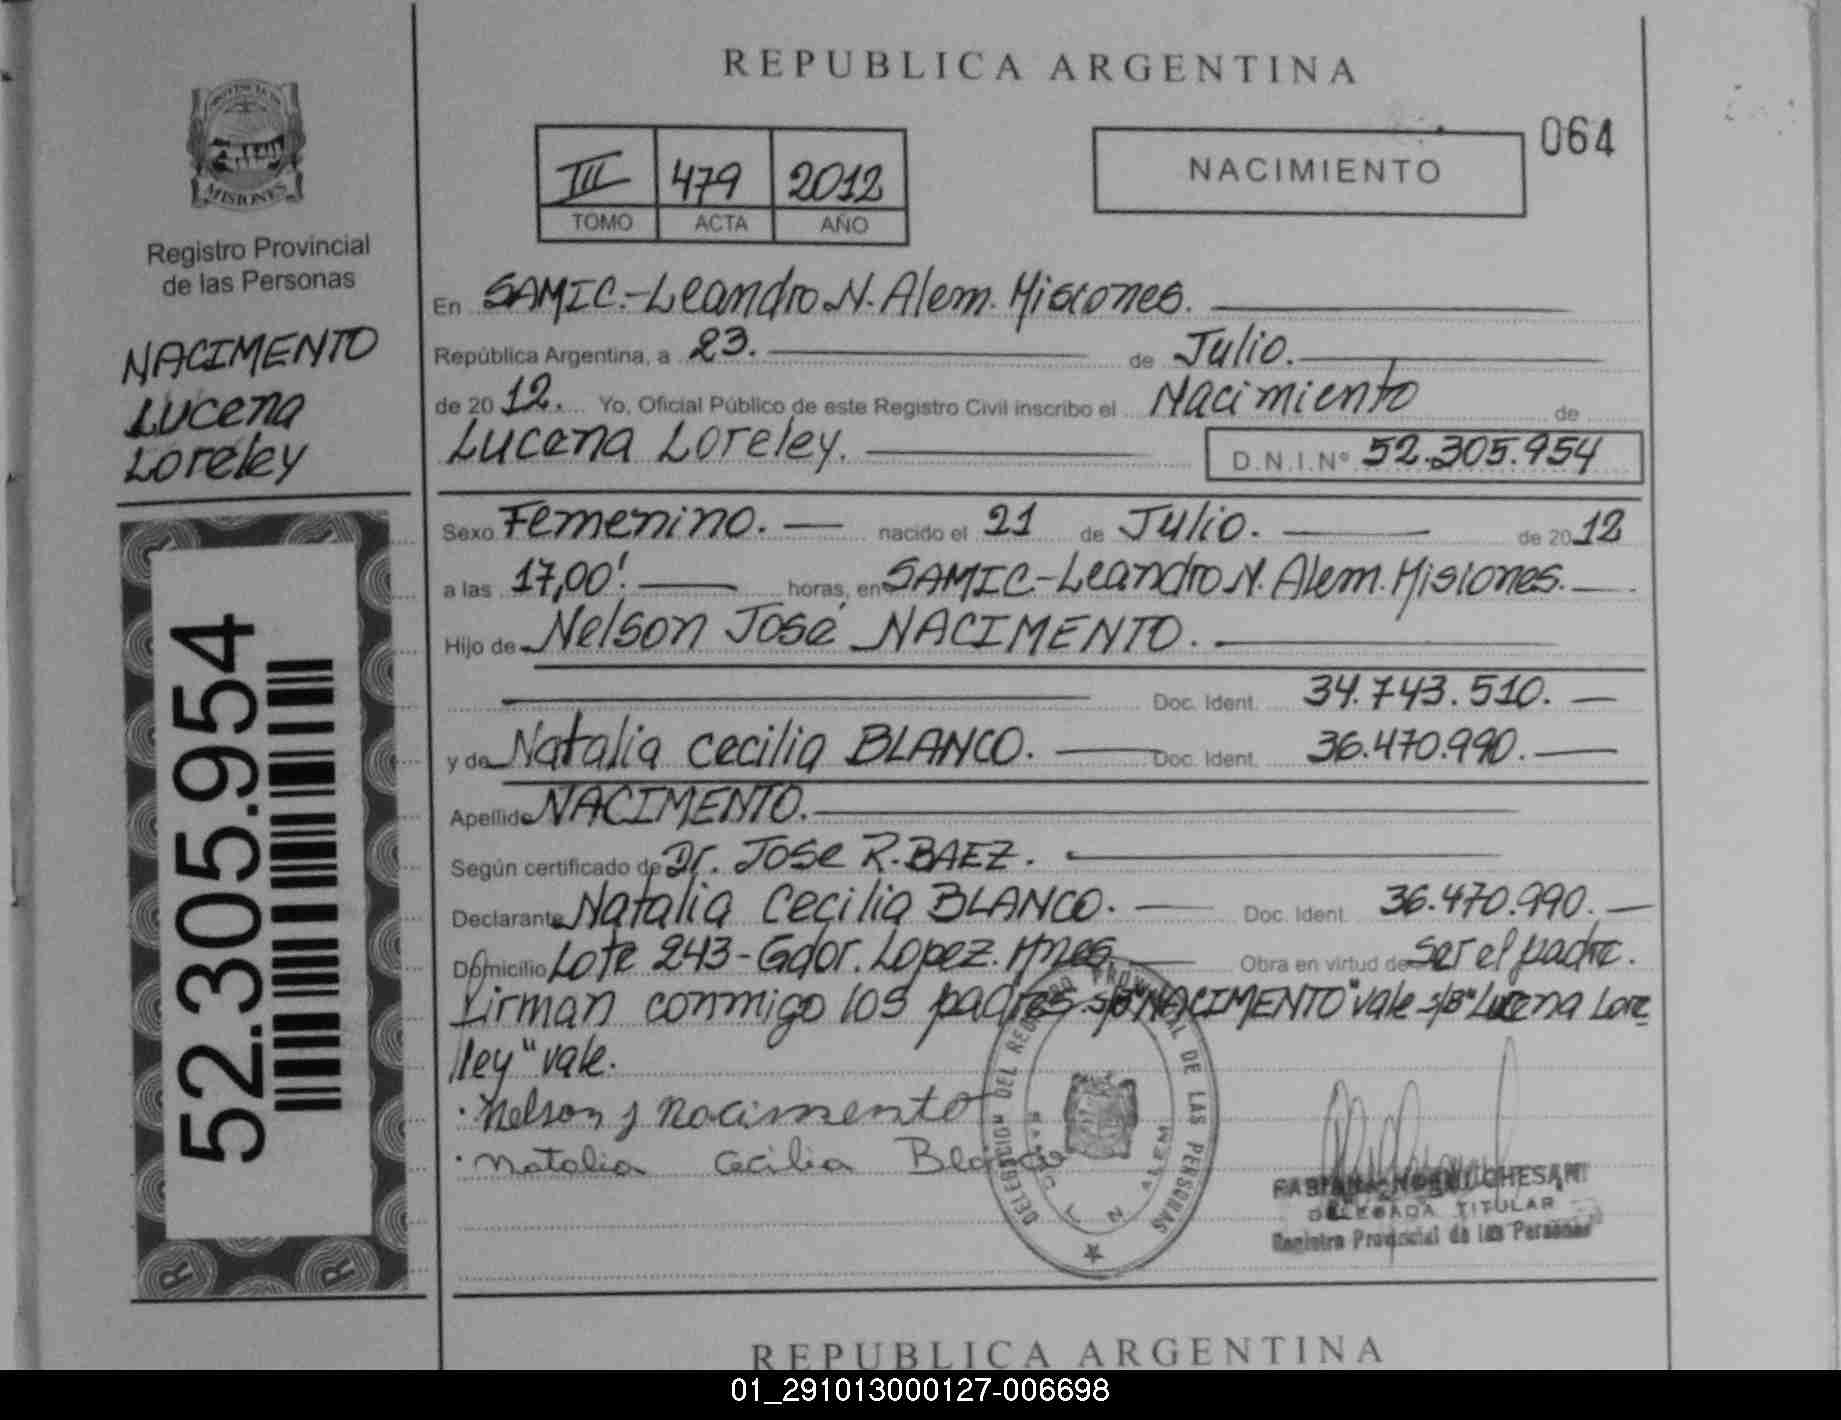 REPUBLICA ARGENTINA
064
NACIMIENTO
III 479 2012
TOMO ACTA AÑO
PROVINCIA DE
MISIONES
Registro Provincial
de las Personas
NACIMENTO
Lucena
Loreley
52.305.954
R R
En SAMIC.-Leandro N. Alem. Misiones.
República Argentina, a 23. de Julio.
de 2012. Yo, Oficial Público de este Registro Civil inscribo el Nacimiento de
Lucena Loreley. D.N.I.Nº 52.305.954
Sexo Femenino. nacido el 21 de Julio. de 2012
a las 17,00! horas, en SAMIC-Leandro N. Alem. Misiones.
Hijo de Nelson José NACIMENTO.
Doc. Ident. 34.743.510.
y de Natalia Cecilia BLANCO. Doc. Ident. 36.470.990.
Apellido NACIMENTO.
Según certificado de Dr. Jose R. BAEZ.
Declarante Natalia Cecilia BLANCO. Doc. Ident. 36.470.990.
Domicilio Lote 243-Gdor. Lopez. Mnes. Obra en virtud de ser el padre.
Firman conmigo los padres. s/B "NACIMENTO" vale s/B "Lucena Lore
ley" vale.
Nelson J Nacimento
Natalia Cecilia Blanco
DELEGACION DEL REGISTRO PROVINCIAL DE LAS PERSONAS
L N ALEM
DELEGADA TITULAR
Registro Provincial de las Personas
REPUBLICA ARGENTINA
01_291013000127-006698